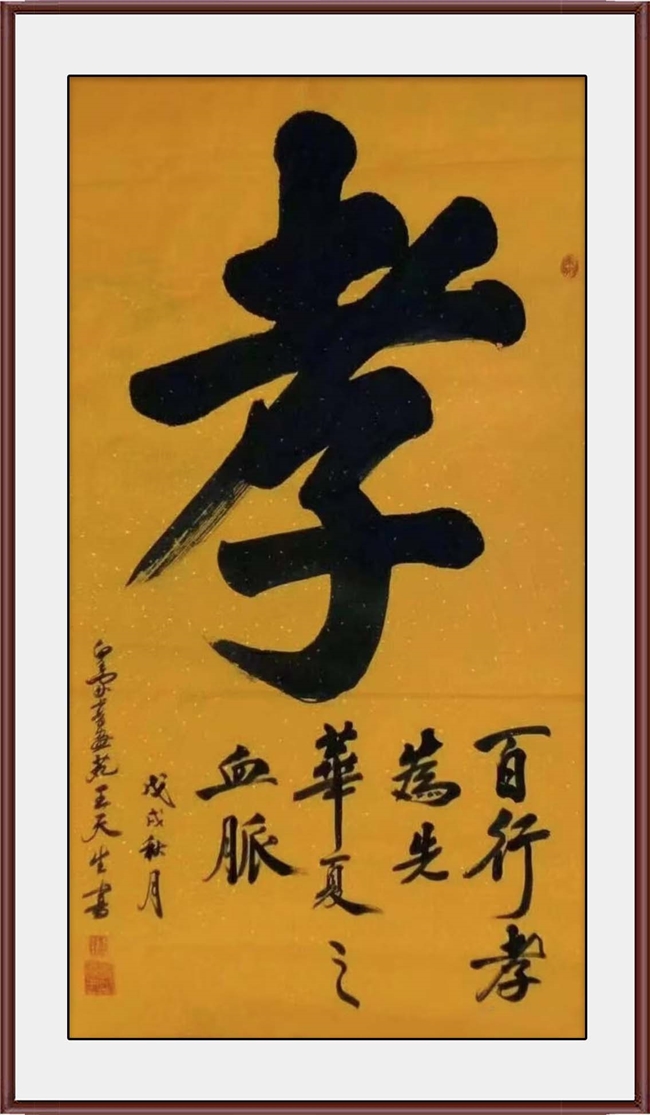 孝
百行孝
為先
華夏之
血脈
戊戌秋月
書畫苑王天生書